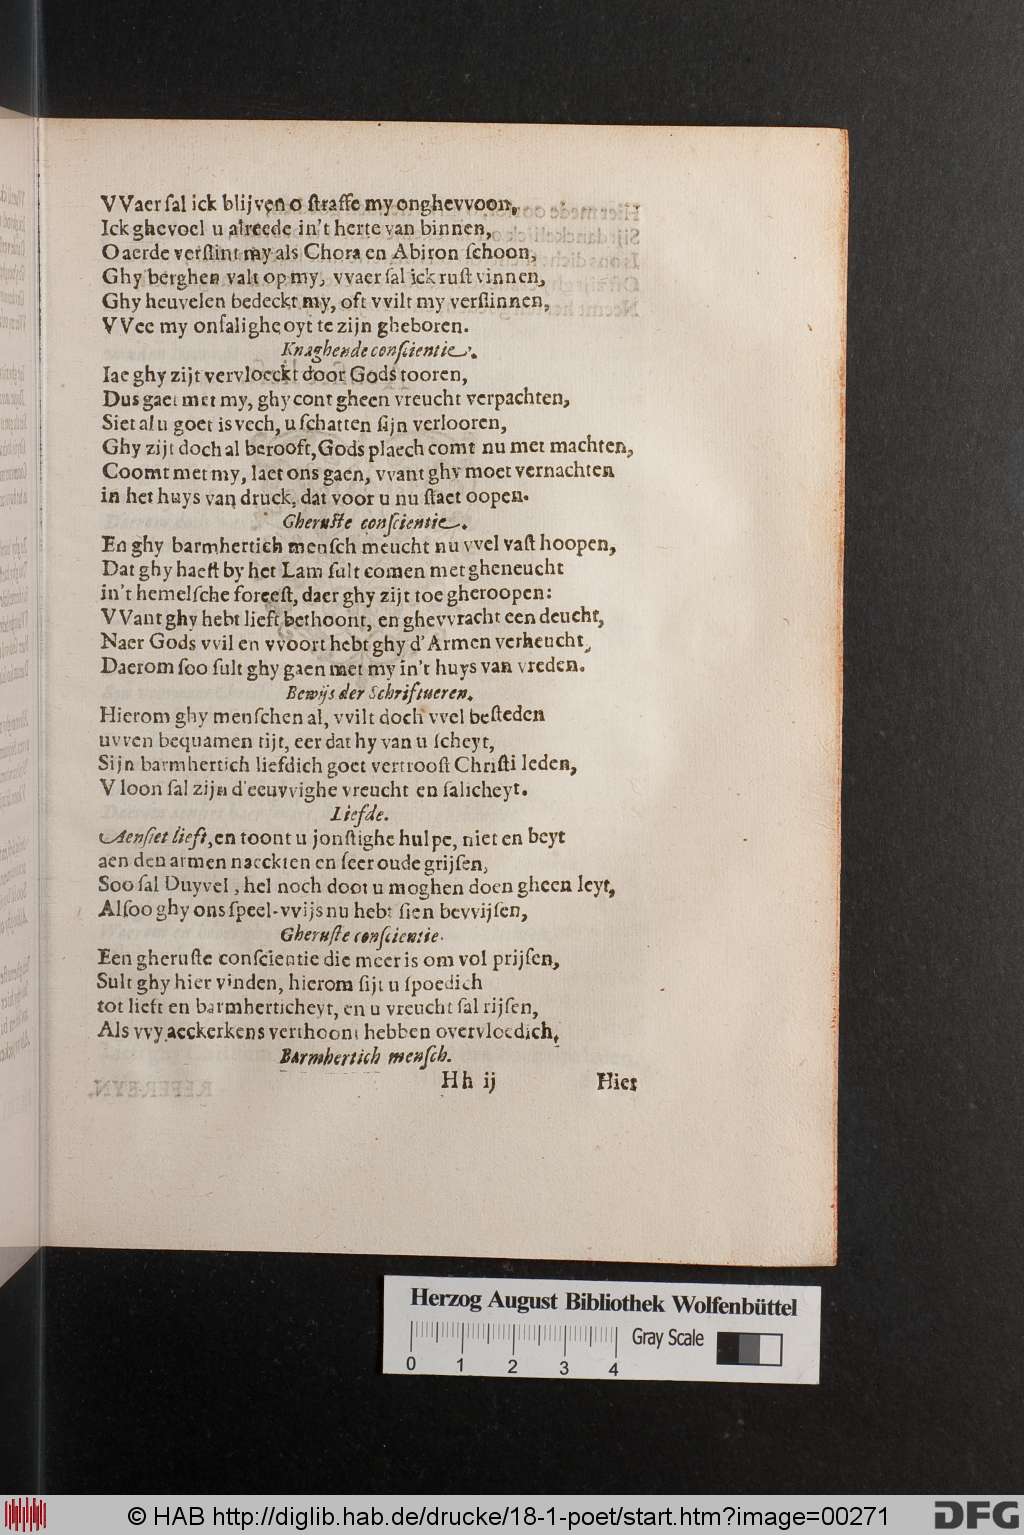 VVaer ſal ick blijven o ſtraffe my onghevvoon,
Ick ghevoel u alreede in't herte van binnen,
O aerde verſlint my als Chora en Abiron ſchoon,
Ghy berghen valt op my, vvaer ſal ick ruſt vinnen,
Ghy heuvelen bedeckt my, oft vvilt my verſlinnen,
VVee my onſalighe oyt te zijn gheboren.
Knaghende conſcientie.
Iae ghy zijt vervloeckt door Gods tooren,
Dus gaet met my, ghy cont gheen vreucht verpachten,
Siet al u goet is vech, u ſchatten ſijn verlooren,
Ghy zijt doch al berooft, Gods plaech comt nu met machten,
Coomt met my, laet ons gaen, vvant ghy moet vernachten
in het huys van druck, dat voor u nu ſtaet oopen.
Gheruſte conſcientie.
En ghy barmhertich menſch meucht nu vvel vaſt hoopen,
Dat ghy haeſt by het Lam ſult comen met gheneucht
in't hemelſche foreeſt, daer ghy zijt toe gheroopen:
VVant ghy hebt lieft bethoont, en ghevvracht een deucht,
Naer Gods vvil en vvoort hebt ghy d'Armen verheucht,
Daerom ſoo ſult ghy gaen met my in't huys van vreden.
Bewijs der Schriftueren.
Hierom ghy menſchen al, vvilt doch vvel beſteden
uvven bequamen tijt, eer dat hy van u ſcheyt,
Sijn barmhertich liefdich goet vertrooſt Chriſti leden,
V loon ſal zijn d'eeuvvighe vreucht en ſalicheyt.
Liefde.
Aenſiet lieft, en toont u jonſtighe hulpe, niet en beyt
aen den armen naeckten en ſeer oude grijſen,
Soo ſal Duyvel, hel noch doot u moghen doen gheen leyt,
Alſoo ghy ons ſpeel-vvijs nu hebt ſien bevvijſen,
Gheruſte conſcientie.
Een gheruſte conſcientie die meer is om vol prijſen,
Sult ghy hier vinden, hierom ſijt u ſpoedich
tot lieft en barmherticheyt, en u vreucht ſal rijſen,
Als vvy aeckerkens verthoont hebben overvloedich,
Barmhertich menſch.
Hh ij Hier
REFEREYN.
Herzog August Bibliothek Wolfenbüttel
Gray Scale
0 1 2 3 4
© HAB http://diglib.hab.de/drucke/18-1-poet/start.htm?image=00271
DFG